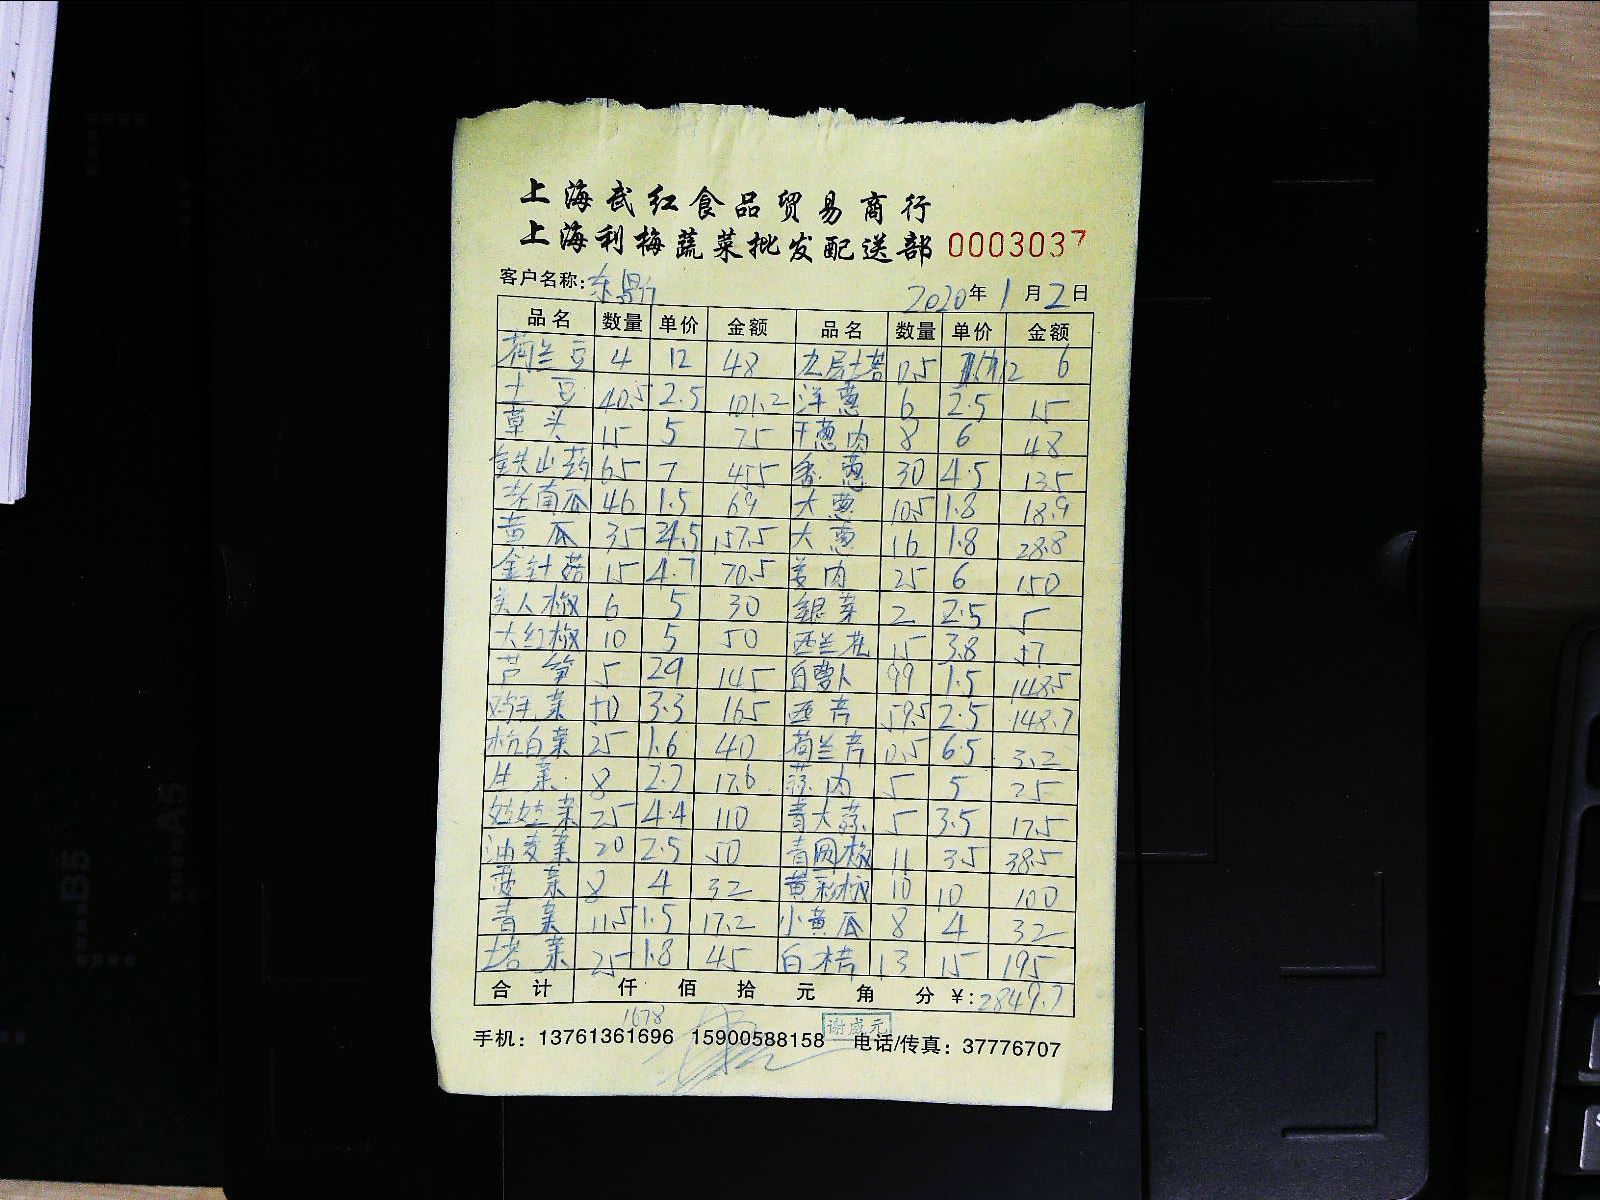 上海武红食品贸易商行
上海利梅蔬菜批发配送部 0003037
客户名称: 2020年1月2日
品名 数量 单价 金额 品名 数量 单价 金额
荷兰豆 4 12 48 九层塔 0.5 12 6
土豆 40.5 2.5 101.2 洋葱 6 2.5 15
草头 15 5 75 干葱肉 8 6 48
铁山药 65 7 455 香葱 30 4.5 135
老南瓜 46 1.5 69 大葱 10.5 1.8 18.9
黄瓜 35 4.5 157.5 大葱 16 1.8 28.8
金针菇 15 4.7 70.5 姜肉 25 6 150
美人椒 6 5 30 银芽 2 2.5 5
大红椒 10 5 50 西兰花 15 3.8 57
芦笋 5 29 145 白萝卜 99 1.5 148.5
鸡毛菜 50 3.3 165 西芹 59.5 2.5 148.7
杭白菜 25 1.6 40 荷兰芹 0.5 6.5 3.2
生菜 8 2.2 17.6 蒜肉 5 5 25
娃娃菜 25 4.4 110 青大蒜 5 3.5 17.5
油麦菜 20 2.5 50 青圆椒 11 3.5 38.5
菠菜 8 4 32 黄彩椒 10 10 100
青菜 11.5 1.5 17.2 小黄瓜 8 4 32
塔菜 25 1.8 45 白桔 13 15 195
合计 仟 佰 拾 元 角 分 ¥:2849.7
1678
手机：13761361696 15900588158 谢咸元 电话/传真：37776707